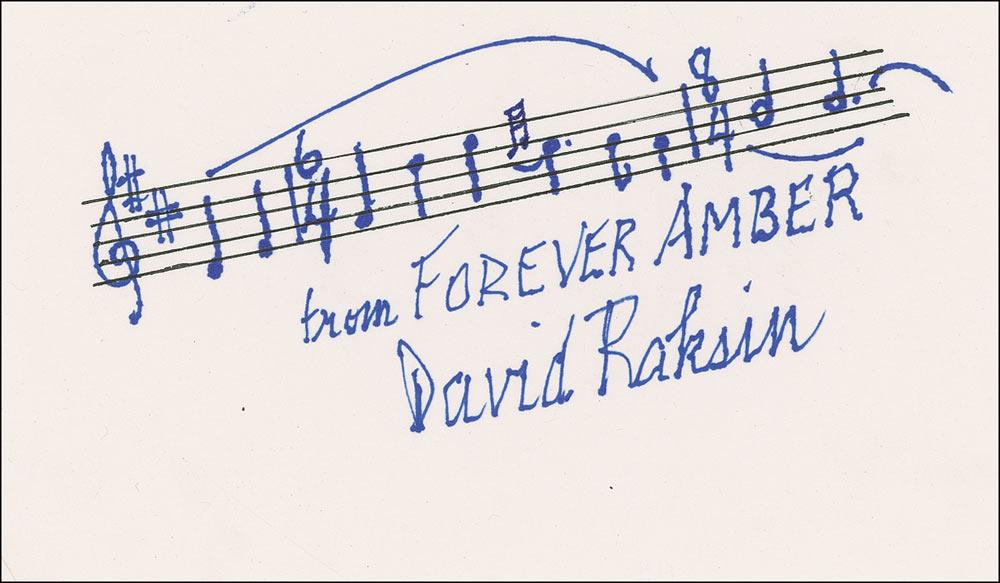 6
4
8
4
from FOREVER AMBER
David Raksin